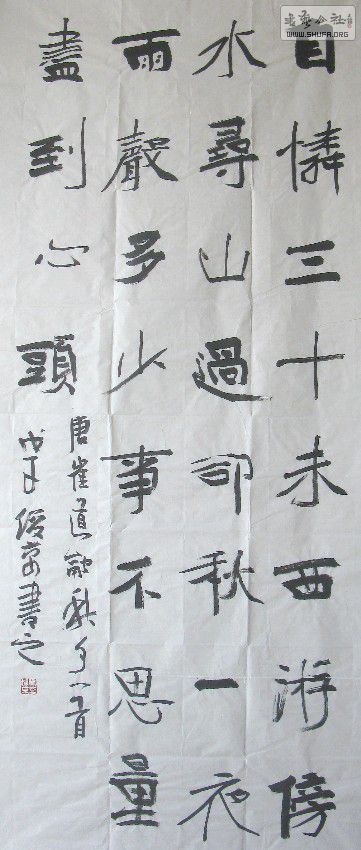 自憐三十未西游傍
水尋山過却秋一夜
雨聲多少事不思量
盡到心頭
唐崔道融秋夕一首
戊子書之
書藝公社
WWW.SHUFA.ORG